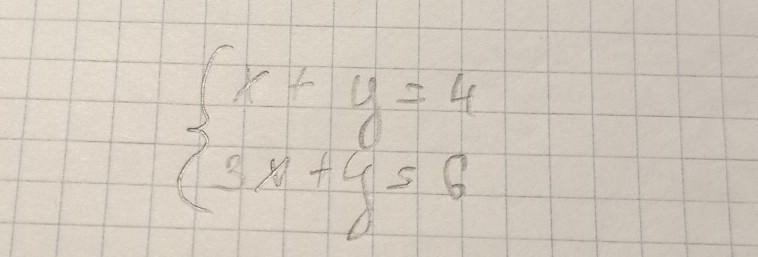 x + y = 4
3x + y = 6